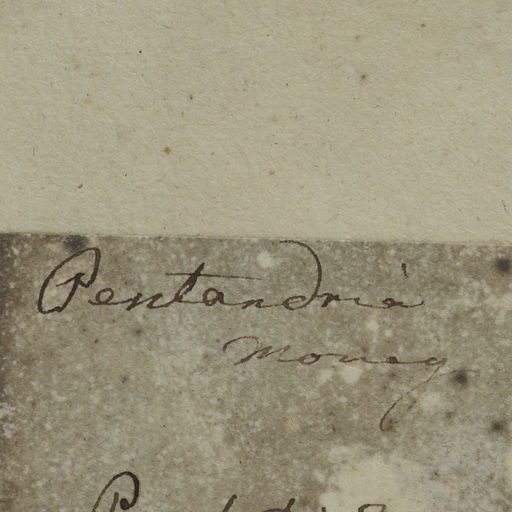 Pentandria
Monog